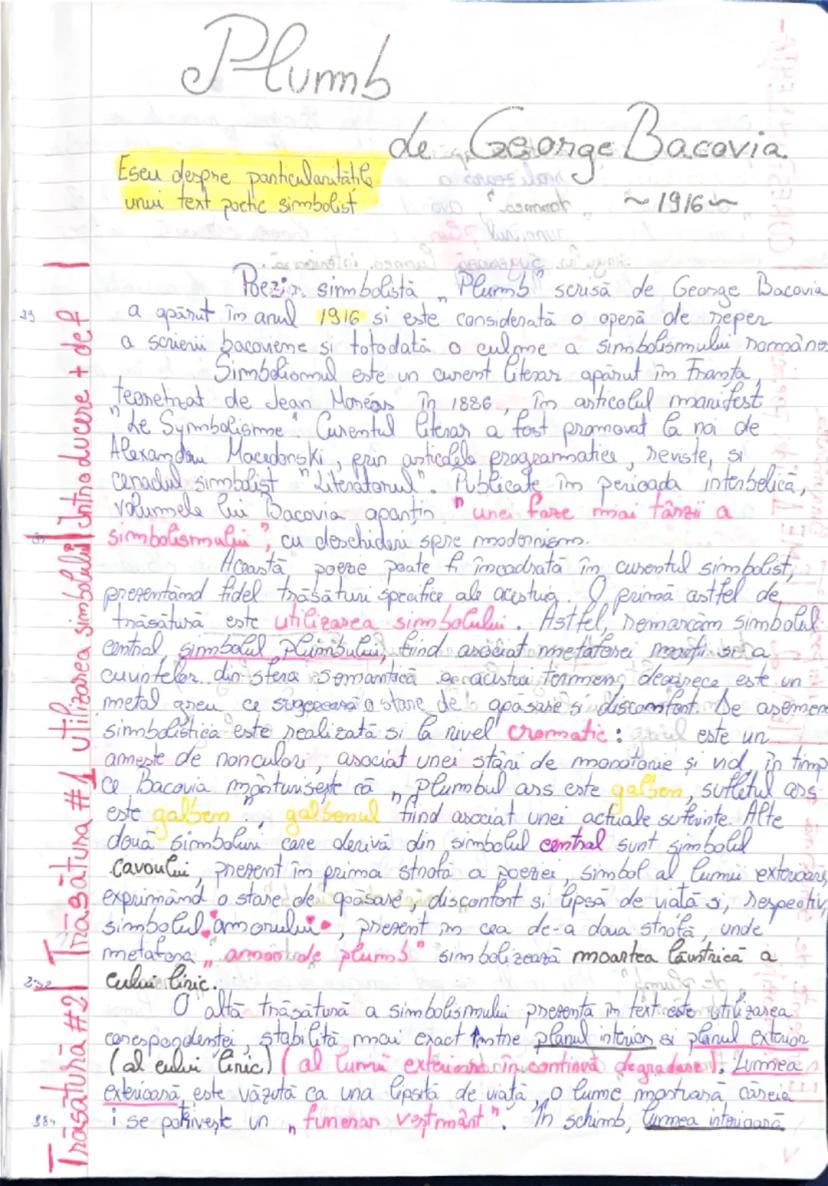 Plumb
de George Bacovia
Eseu despre particularitățile
unui text poetic simbolist
~1916~
Poezia simbolistă „Plumb" scrisă de George Bacovia
29 a apărut în anul 1916 si este considerată o operă de reper
a scrierii bacoviene și totodată o culme a simbolismului românesc
Simbolismul este un curent literar apărut în Franța,
teoretizat de Jean Moréas în 1886, în articolul manifest
"Le Symbolisme". Curentul literar a fost promovat la noi de
Alexandru Macedonski, prin articole programatice, reviste, si
cenaclul simbolist "Literatorul". Publicate în perioada interbelică,
volumele lui Bacovia aparțin "unei faze mai târzii a
simbolismului", cu deschideri spre modernism.
Această poezie poate fi încadrată în curentul simbolist,
prezentând fidel trăsături specifice ale acestuia. O primă astfel de
trăsătură este utilizarea simbolului. Astfel, remarcăm simbolul
central simbolul plumbului, fiind asociat metaforei morții si a
cuvintelor din sfera semantică a acestui termen, deoarece este un
metal greu ce sugerează o stare de apăsare si discomfort. De asemen
simbolistica este realizată si la nivel cromatic: griul este un
amestec de nonculori, asociat unei stări de monotonie și vid, în timp
ce Bacovia mărturisește că „Plumbul ars este galben, sufletul ars
este galben", galbenul fiind asociat unei actuale suferinte. Alte
două simboluri care derivă din simbolul central sunt simbolul
cavoului, prezent în prima strofă a poeziei, simbol al lumii exterioare,
exprimând o stare de apăsare, discomfort si lipsă de viață si, respectiv,
simbolul amorului, prezent în cea de-a doua strofă, unde
metafora „amor de plumb" simbolizează moartea lăuntrică a
eului liric.
O altă trăsătură a simbolismului prezentă în text este utilizarea
corespondenței, stabilită mai exact între planul interior si planul exterior
(al eului liric) (al lumii exterioare în continuă degradare). Lumea
exterioară este văzută ca una lipsită de viață, o lume mortuară căreia
i se potrivește un „funerar vestmânt". În schimb, lumea interioară
Introducere + def
Trăsătura #1 utilizarea simbolului
Trăsătură #2